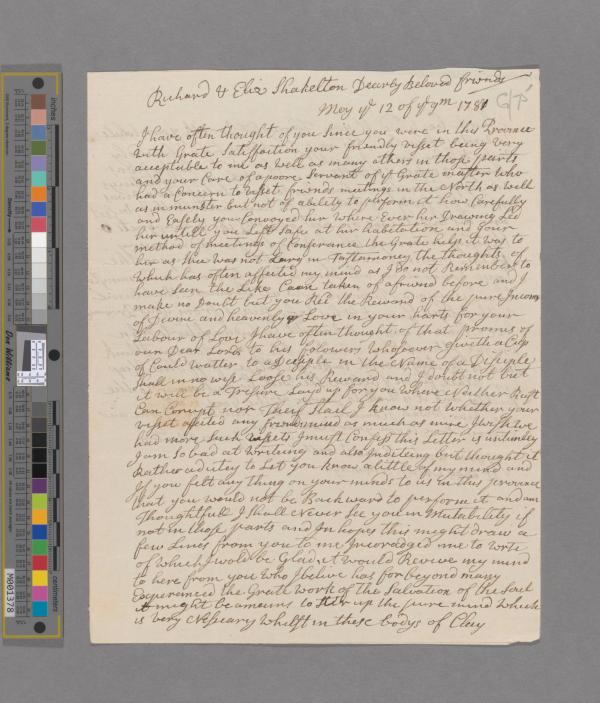 Richard & Eliz Shakelton Dearly Beloved friends
Moy ye 12 of ye 9m 1781
I have often thought of you Since you were in this Province
with Grate Satisfaction your friendly visset being very
acceptable to me as well as many others in those parts
and your Care of a poore Servant of ye Grate master who
had a Concern to visset friends meetings in the North as well
as in munster but not of ability to plform it how Carefully
and Safely you Convayed hir where Ever her Drawing Led
hir untill you Left Safe at hur habitation and your
method of meetings of Conferance the Grate help it was to
her as Shee was not Larg in Testamoney the thoughts of
which has often affected my mind as I do not Remember to
have Seen the Like Care taken of a friend before and I
make no Doubt but you felt the Reward of the pure Incom
of Devine and heavenly Love in your harts for your
Labour of Love I have often thought of that promis of
our Dear Lord to his folowers whosoever giveth a Cup
of Could watter to a disciple in the Name of a Disiple
Shall in no wise Loose his Reward and I doubt not but
it will be a Tresure Layd up for you where Neither Rust
Can Corupt nor Theif Stail I know not whether your
visset affected any friends mind as much as mine I wish we
had more Such vissets I must Confess this Letter is untimley
I am So bad at writeing and also Inditeing but thought it
Rather a duty to Let you know a little of my mind and
if you felt any thing on your minds to us in this provance
that you would not be Backward to perform it and am
Thoughtfull I Shall Never See you in Mutability if
not in those parts and In hopes this might draw a
few Lines from you to me Incoradged me to write
of which I wold be Glad it would Revive my mind
to here from you who I belive has for beyond many
Experienced the Grate work of the Salvation of the Soul
it might be a means to Stir up the pure mind which
is very Nessecary whilst in these bodys of Clay
inches
centimeters
Don Williams
M001378